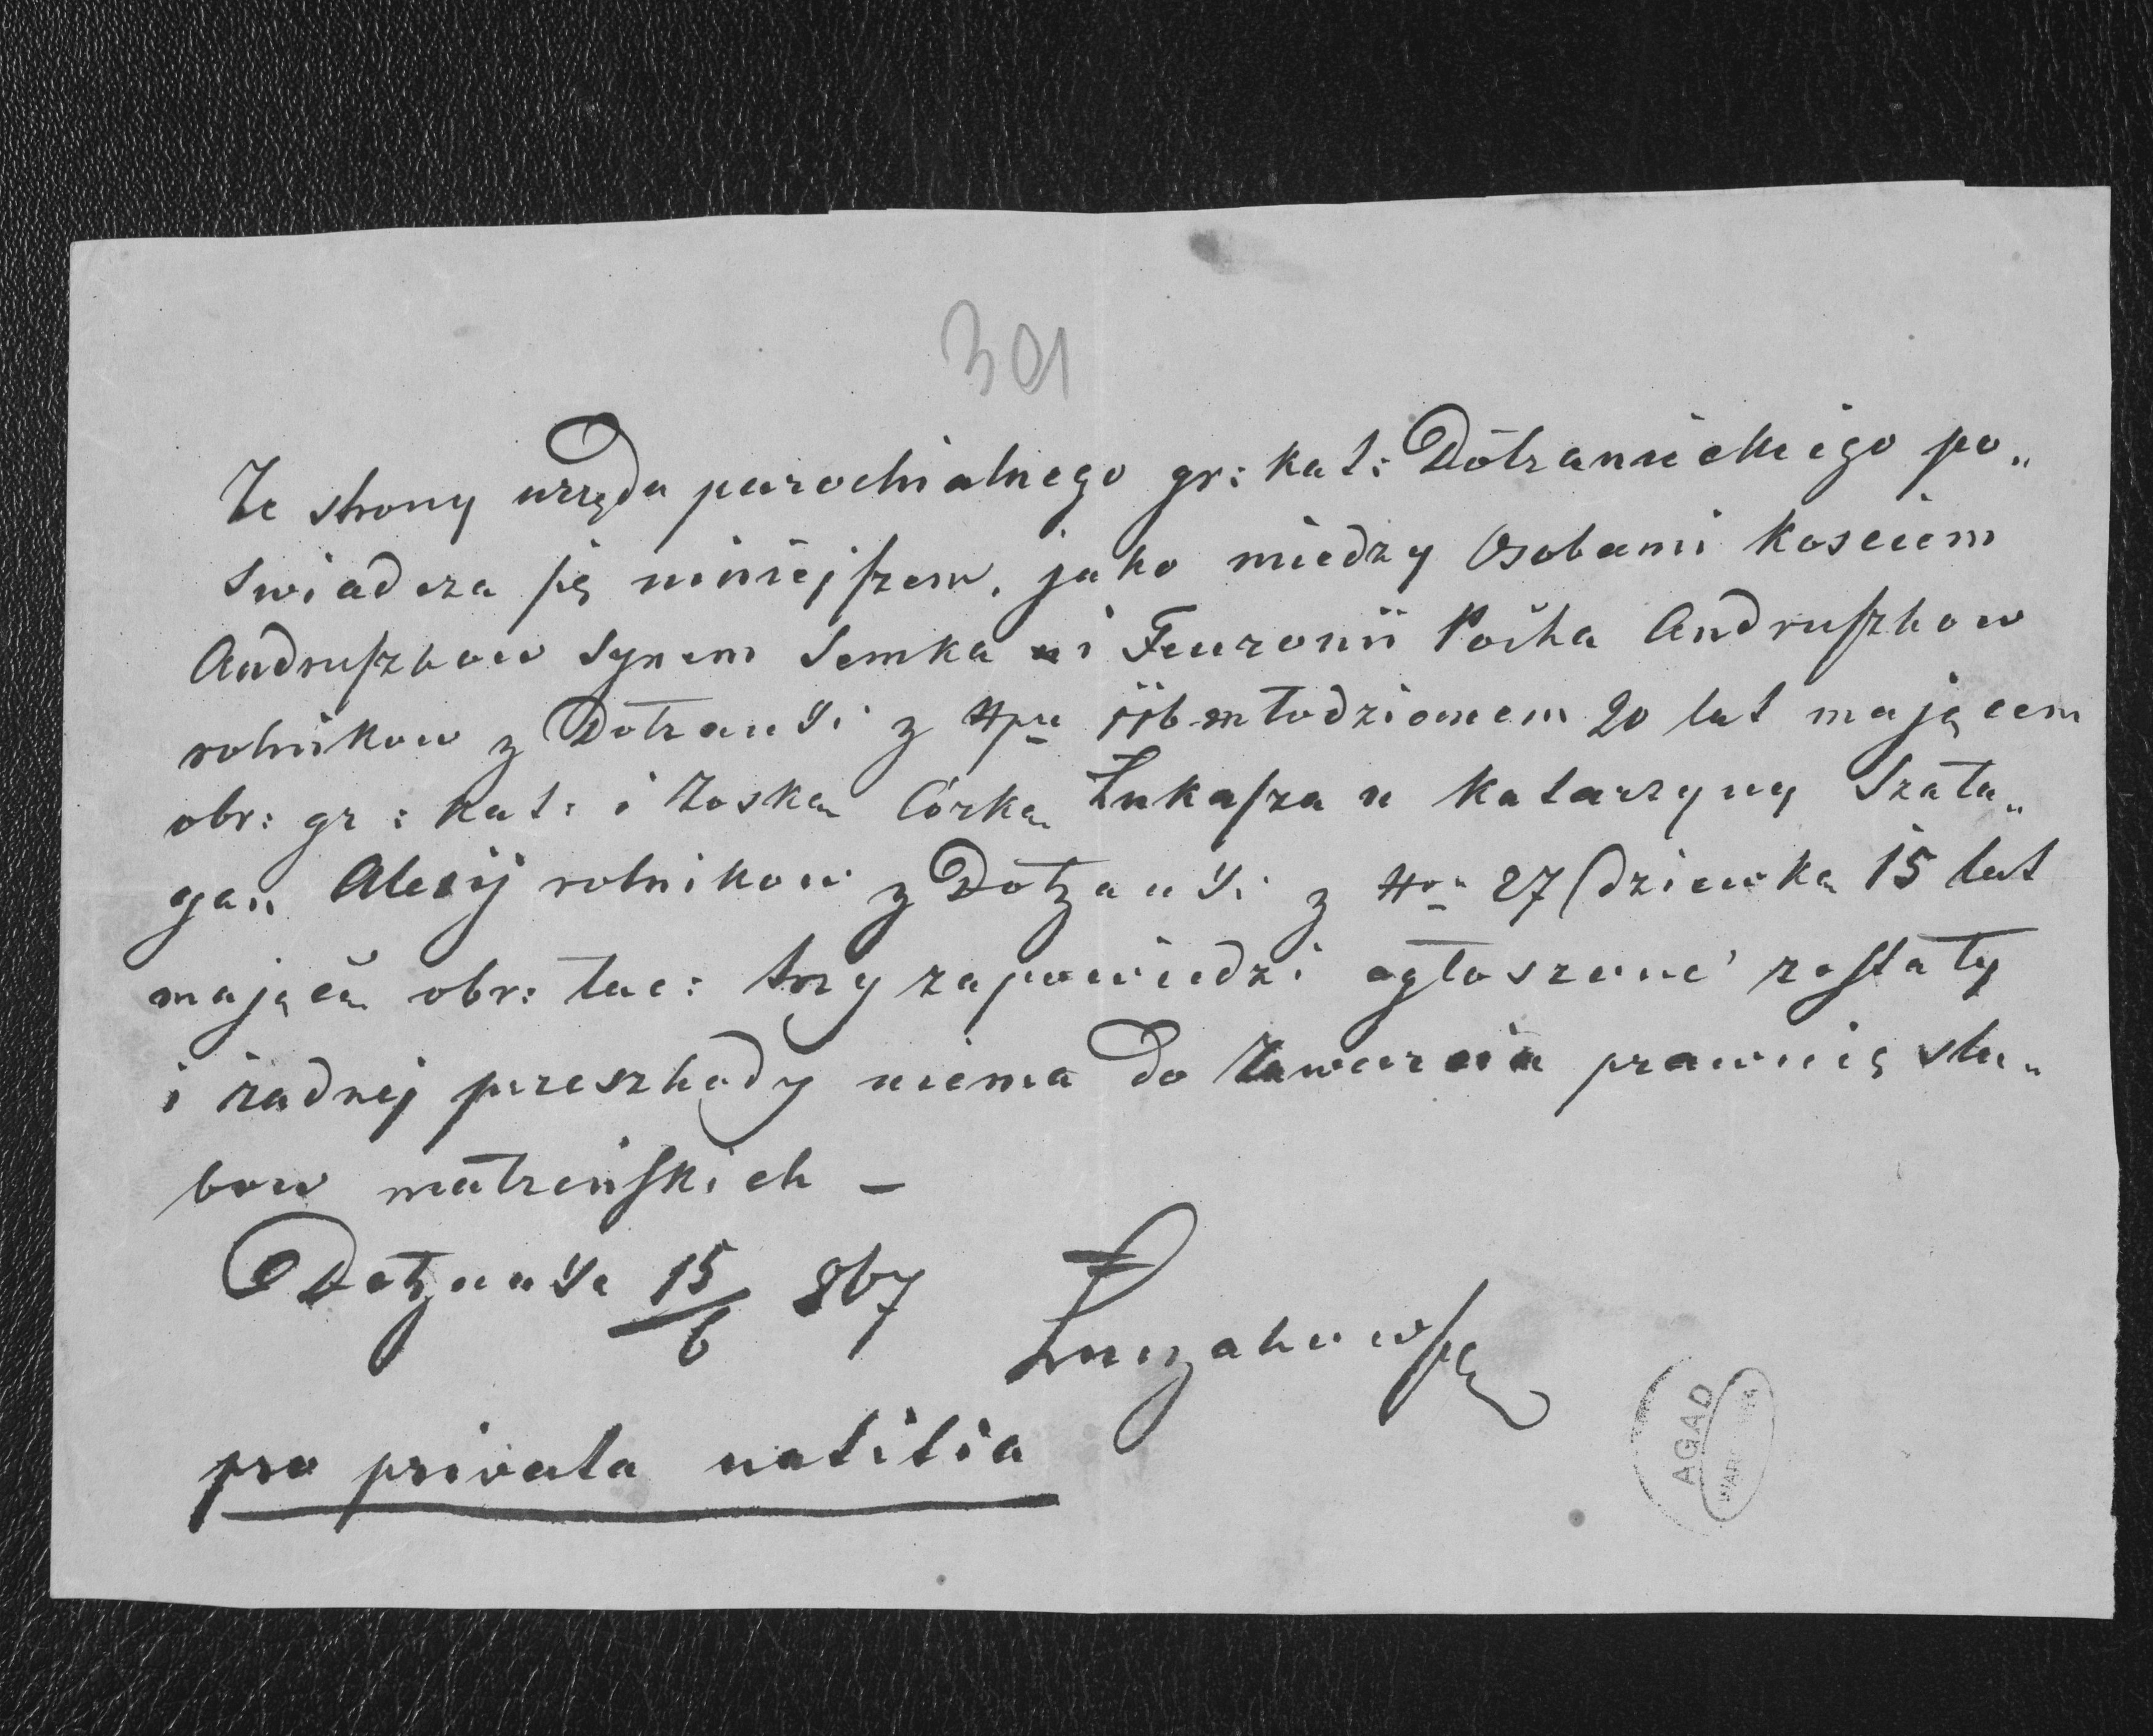 301
Ze strony urzędu parochialnego gr: kat: Dołzanieckiego po„
swiadcza się niniejszem, jako miedzy Osobami Kosciem
Andruszkow synem Semka i Feuronii Andruszkow
rolnikow z Dołzanki z młodziencem 20 lat mającem
obr: gr: kat: i Zoską Córką Łukasza u Katarzyny Szała„
gan Alexij rolnikow z Dołzanki z Nru 27 dziewką 15 lat
mającą obr: łac: trzy zapowiedzi ogłoszone zostały
i żadnej przeszkody niema do Zawarcia prawnie slu„
bow małzeńskich –
Dołzanka 15/6 867
pro privata notitia
AGAD